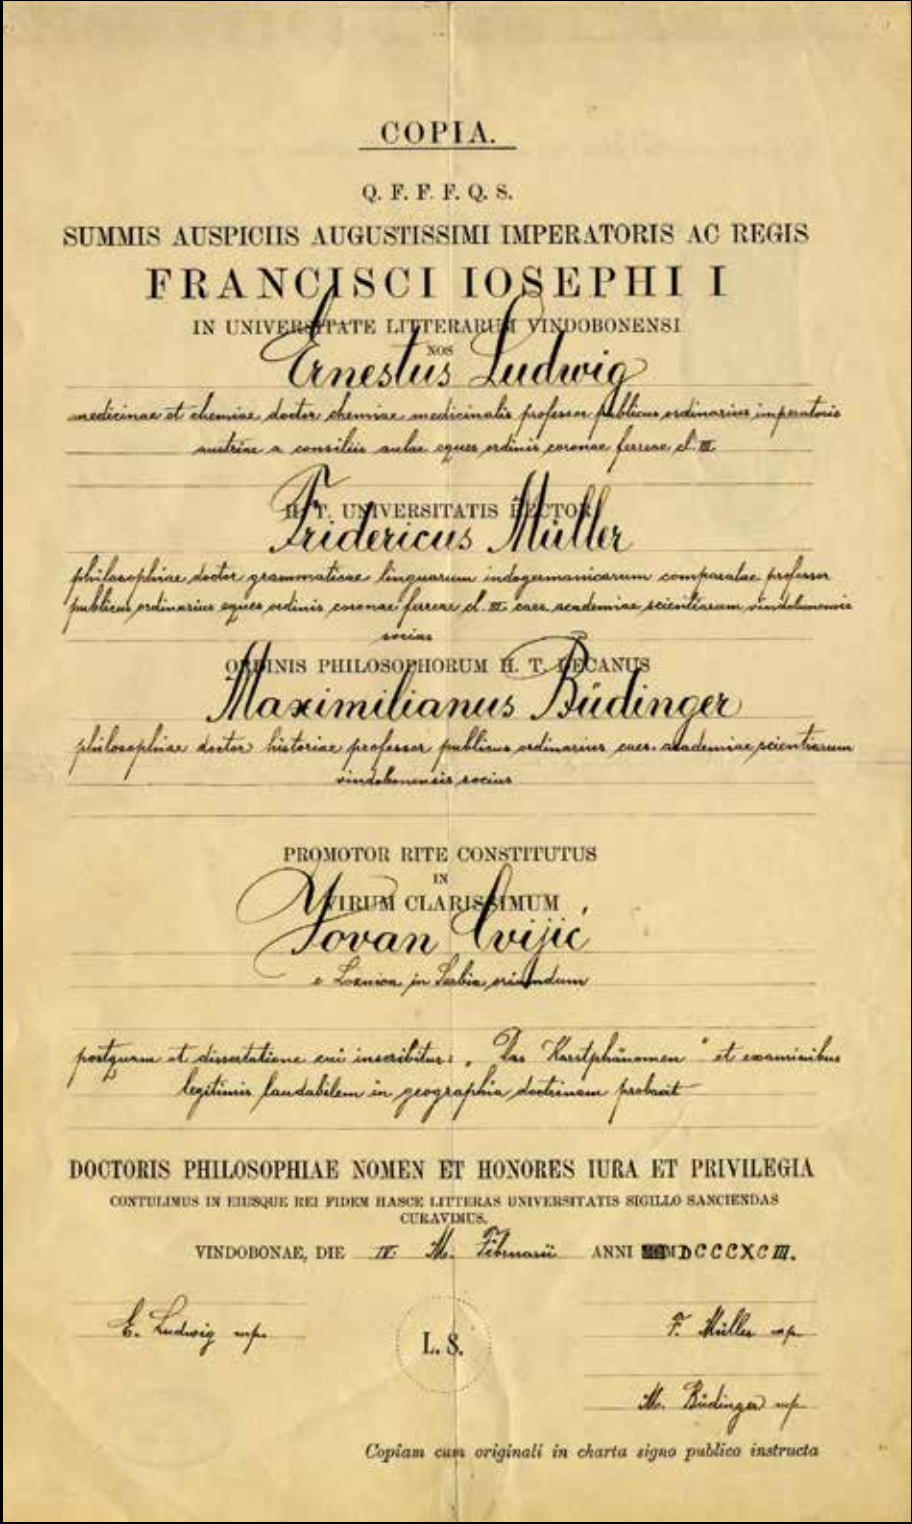 COPIA.
Q. F. F. F. Q. S.
SUMMIS AUSPICIIS AUGUSTISSIMI IMPERATORIS AC REGIS
FRANCISCI IOSEPHI I
IN UNIVERSITATE LITTERARUM VINDOBONENSI
NOS
Ernestus Ludwig
medicinae et chemiae doctor chemiae medicinalis professor publicus ordinarius imperatoris
austriae a consiliis aulae eques ordinis coronae ferreae cl. III.
H. T. UNIVERSITATIS RECTOR
Fridericus Müller
philosophiae doctor grammaticae linguarum indogermanicarum comparatae professor
publicus ordinarius eques ordinis coronae ferreae cl. III. caes. academiae scientiarum vindobonensis
socius
ORDINIS PHILOSOPHORUM H. T. DECANUS
Maximilianus Büdinger
philosophiae doctor historiae professor publicus ordinarius caes. academiae scientiarum
vindobonensis socius
PROMOTOR RITE CONSTITUTUS
IN
VIRUM CLARISSIMUM
Jovan Cvijić
e Loznica in Serbia oriundum
postquam et dissertatione cui inscribitur: „Das Karstphänomen“ et examinibus
legitimis laudabilem in geographia doctrinam probavit
DOCTORIS PHILOSOPHIAE NOMEN ET HONORES IURA ET PRIVILEGIA
CONTULIMUS IN EIUSQUE REI FIDEM HASCE LITTERAS UNIVERSITATIS SIGILLO SANCIENDAS
CURAVIMUS.
VINDOBONAE, DIE IV. M. Februarii ANNI MDCCCXCIII.
E. Ludwig mp.
F. Müller mp.
L. S.
M. Büdinger mp.
Copiam cum originali in charta signo publico instructa